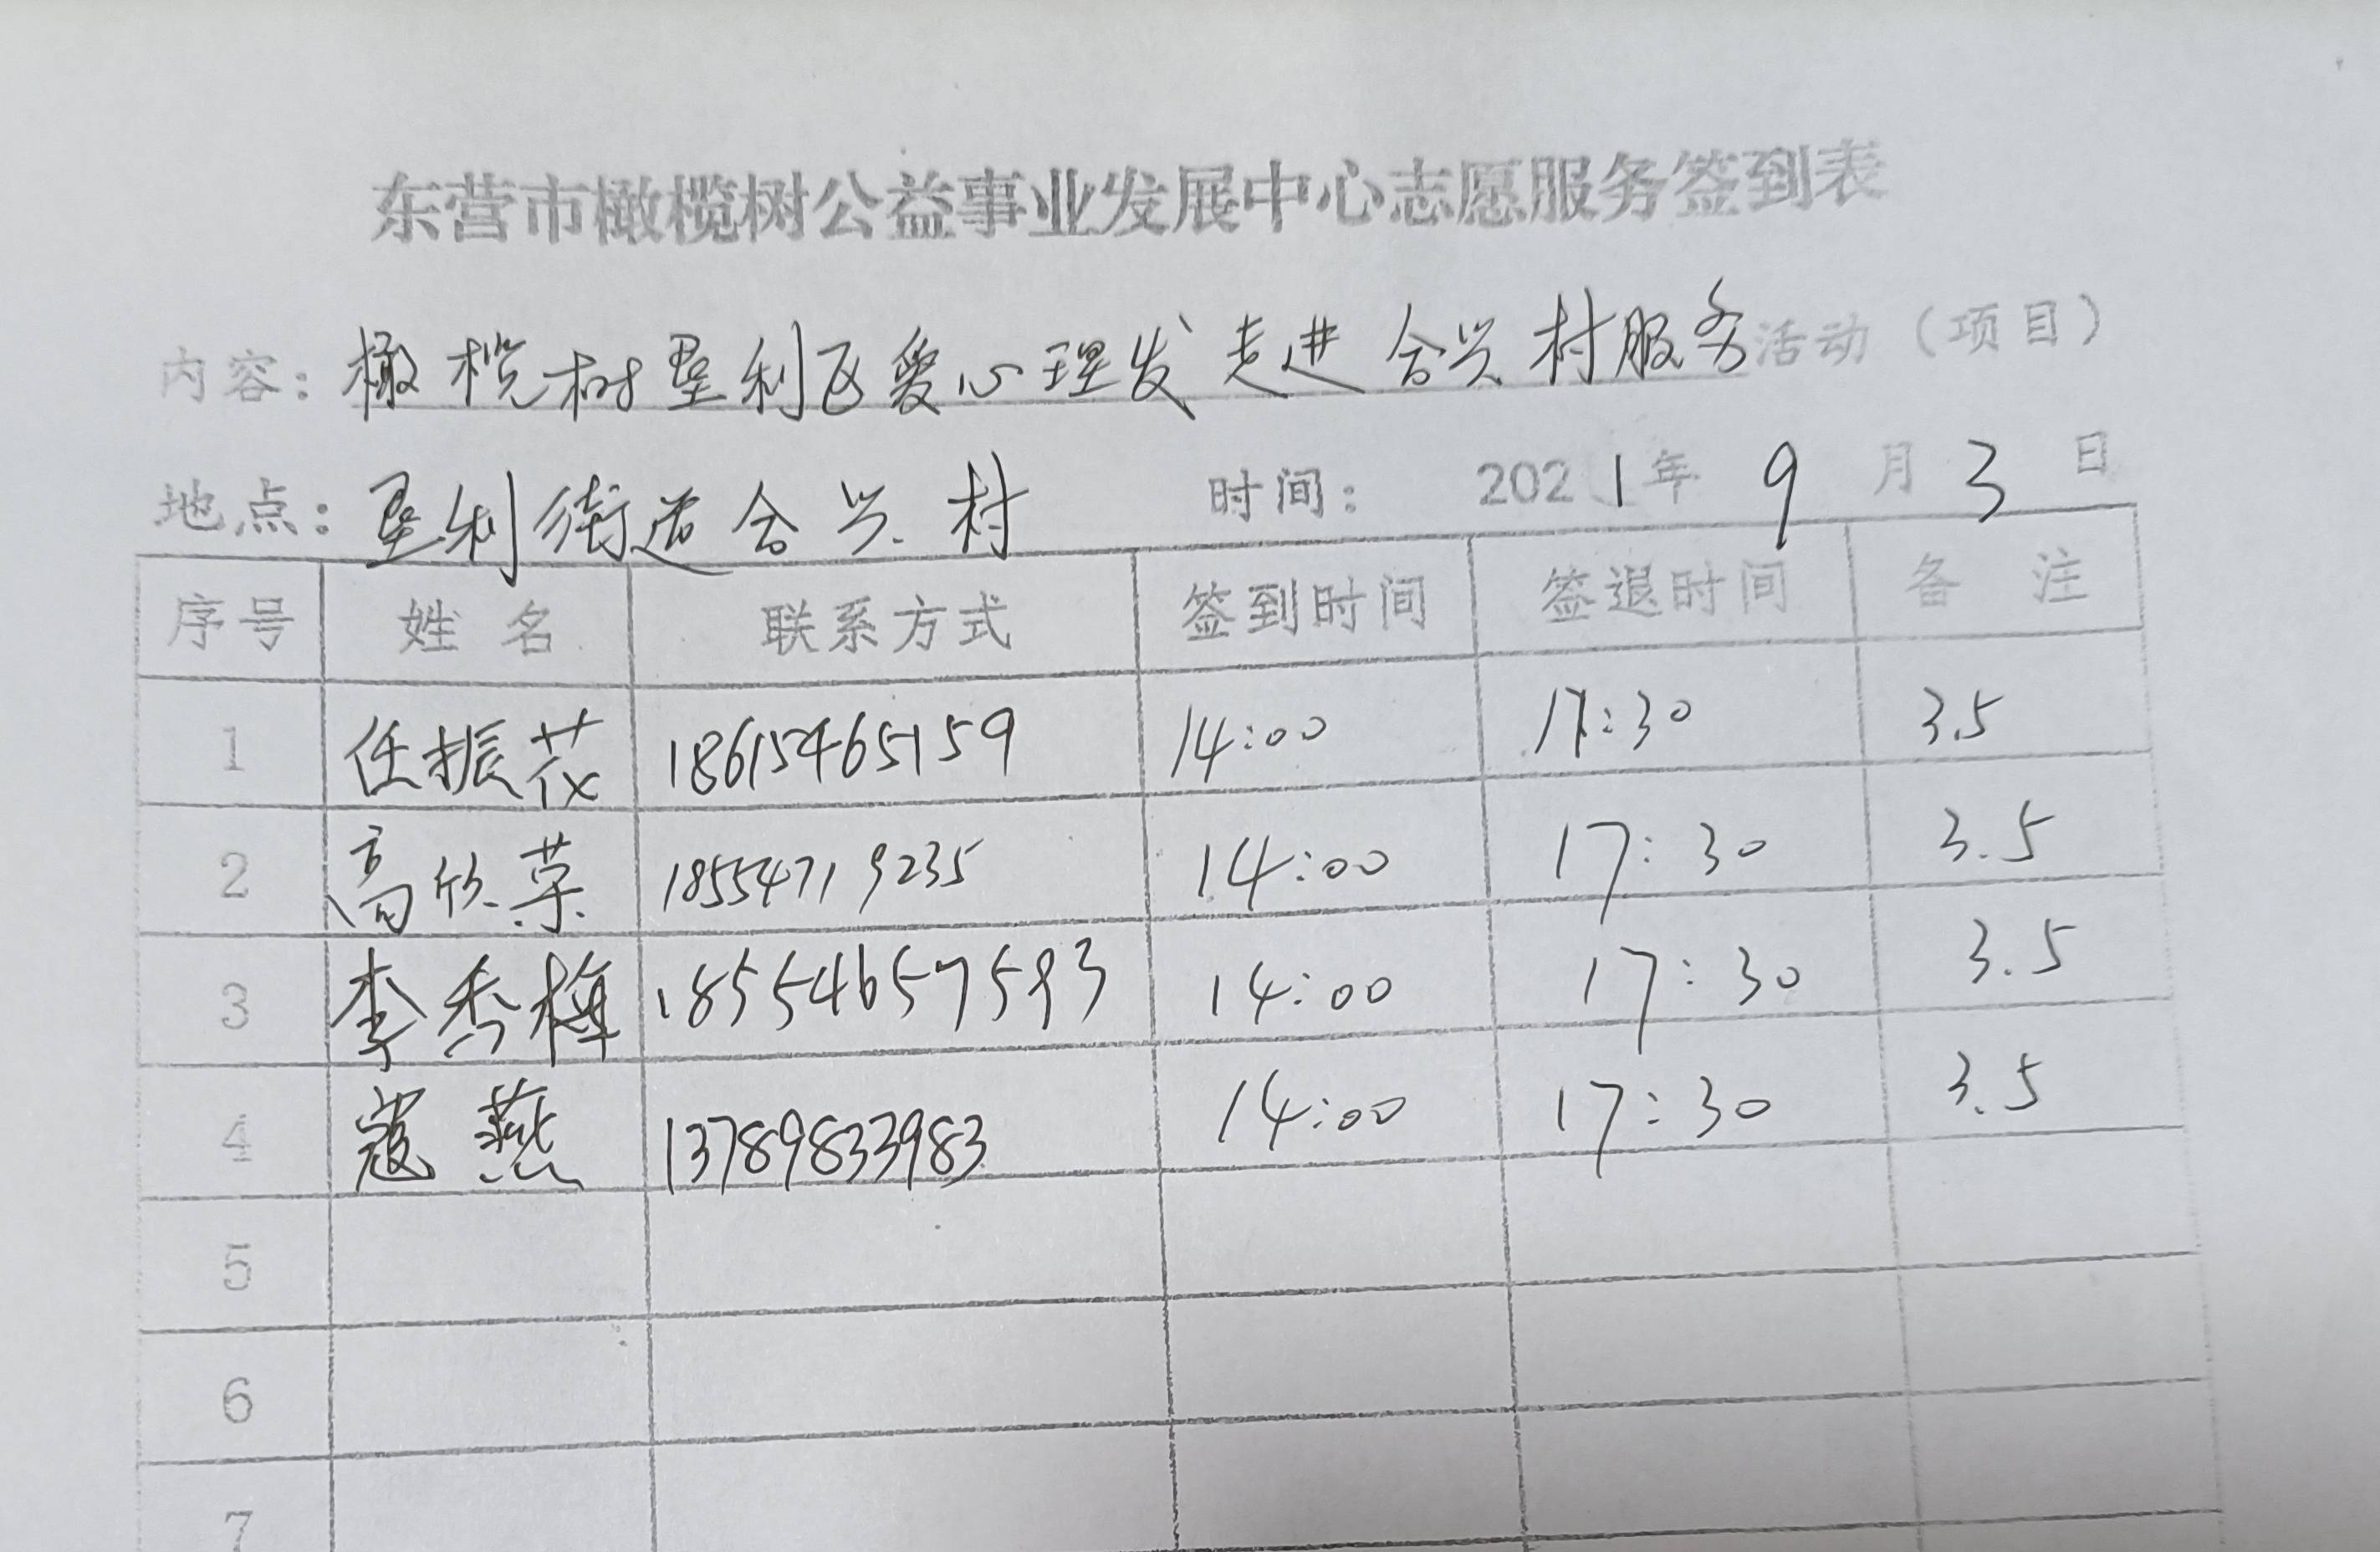 东营市橄榄树公益事业发展中心志愿服务签到表
内容：橄榄树垦利区爱心理发走进合兴村服务活动（项目）
地点：垦利街道合兴村 时间：2021年9月3日
序号 姓名 联系方式 签到时间 签退时间 备注
1 任振花 18615465159 14:00 17:30 3.5
2 高欣荣 18554719235 14:00 17:30 3.5
3 李秀梅 18554657593 14:00 17:30 3.5
4 寇燕 13789833983 14:00 17:30 3.5
5
6
7